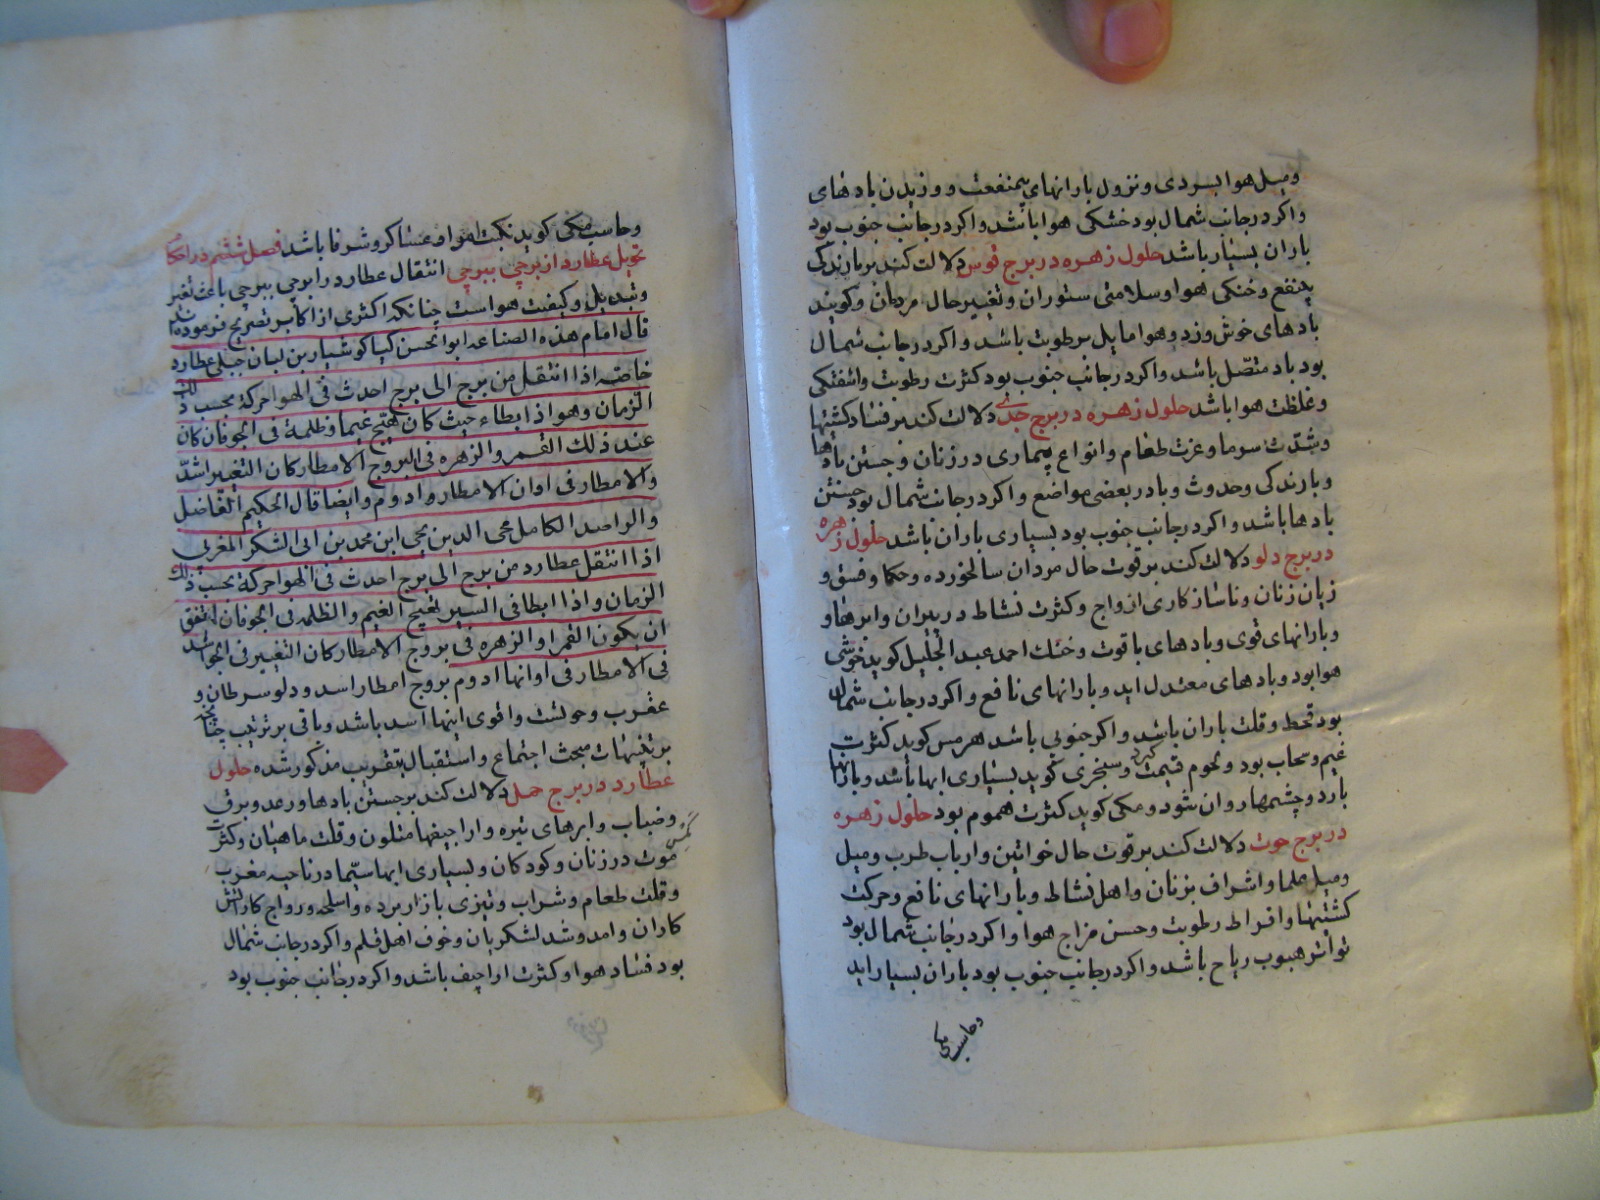 ومیل هوا بسردی و نزول بارانهای بیمنفعت و وزیدن بادهای
واکر در جانب شمال بود خشکی هوا باشد واکر در جانب جنوب بود
باران بسیار باشد حلول زهره در برج قوس دلالت کند بر بارندکی
و خنکی هوا و سلامتی ستوران و تغییر حال مردان و کویند
بادهای خوش وزد و هوا مایل برطوبت باشد و اکر در جانب شمال
بود باد متصل باشد واکر در جانب جنوب بود کثرت رطوبت واشفتکی
و غلظت هوا باشد حلول زهره در برج جدی دلالت کند بر فساد کشتیها
وشدت سرما و عزت طعام و انواع بیماری در زنان و جستن بادها
و بارندکی وحدوث وبا در بعضی مواضع و اکر در جانب شمال بود جستن
بادها باشد و اکر در جانب جنوب بود بسیاری باران باشد حلول زهره
در برج دلو دلالت کند بر قوت حال مردان سالخورده و حکما و فسق و
زیان زنان و ناسازکاری ازواج و کثرت نشاط در پیران و ابرها و
و بارانهای قوی و بادهای باقوت و خنک احمد عبد الجلیل کوید خوشی
هوا بود و بادهای معتدل اید و بارانهای نافع و اکر در جانب شمال
بود قحط و قلت باران باشد و اکر جنوبی باشد هرمس کوید کثرت
غیم و سحاب بود و غموم قیمت کیرد و سنجری کوید بسیاری ابها باشد و بارانها
بارد و چشمها روان شود و مکی کوید کثرت هموم بود حلول زهره
در برج حوت دلالت کند بر قوت حال خواتین و ارباب طرب و میل
و میل علما و اشراف بزنان و اهل نشاط و بارانهای نافع و حرکت
کشتیها و افراط رطوبت و حسن مزاج هوا و اکر در جانب شمال بود
تواتر هبوب ریاح باشد و اکر در جانب جنوب بود باران بسیار اید
وحاسب مکی
وحاسب مکی کوید نکبت امرا و عساکر و شرفا باشد فصل ششم در احکام
تحویل عطارد از برجی ببرجی انتقال عطارد را برجی ببرجی باعث تغیر
وتبدیل و کیفیت هواست چنانکه اکثری از اکابر تصریح فرموده اند
قال امام هذه الصناعه ابوالحسن کیا کوشیار بن لبان جبلی عطارد
خاصته اذا انتقل من برج الی برج احدث فی الهوا حرکة بحسب ذلک
الزمان و هو اذا بطاء حیث کان هیج غیما و ظلمة فی الجو فان کان
عند ذلک القمر والزهره فی البروج الامطار کان التغیر اشد
والامطار فی اوان الامطار و ادوم و ایضا قال الحکیم الفاضل
والراصد الکامل محی الدین یحیی ابن محمد بن ابی الشکر المغربی
اذا انتقل عطارد من برج الی برج احدث فی الهوا حرکة بحسب ذلک
الزمان و اذا ابطا فی السیر لهیج الغیم والظلمه فی الجو فان اتفق
ان یکون القمر او الزهره فی بروج الامطار کان التغییر فی الجو اشد
فی الامطار فی اوانها ادوم بروج امطار اسد و دلو سرطان و
عقرب و حوتست و اقوی اینها اسد باشد و باقی بر ترتیب چنانچه
بر تنبیهات مبحث اجتماع و استقبال بتقریب مذکور شده حلول
عطارد در برج حمل دلالت کند بر جستن بادها و رعد و برق
وضباب و ابرهای تیره و اراجیفها متلون و قلت ماهیان و کثرت
موت در زنان و کودکان و بسیاری ابها سیما در ناحیه مغرب
و قلت طعام و شراب و تیزی بازار برده و اسلحه و رواج کار اتش
کاران و امد و شد لشکریان و خوف اهل قلم و اکر در جانب شمال
بود فساد هوا و کثرت اراجیف باشد و اکر در جانب جنوب بود